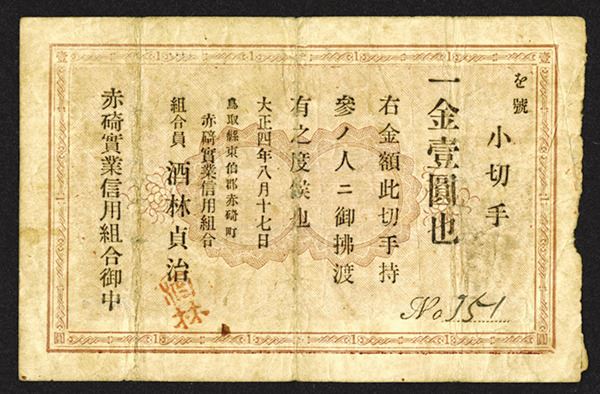 を號
小切手
一金壹圓也
右金額此切手持
參ノ人ニ御拂渡
有之度候也
大正四年八月十七日
鳥取縣東伯郡赤碕町
赤碕實業信用組合
組合員 酒林貞治
酒林
赤碕實業信用組合御中
No 951
壹
1
1
1
1
1
壹